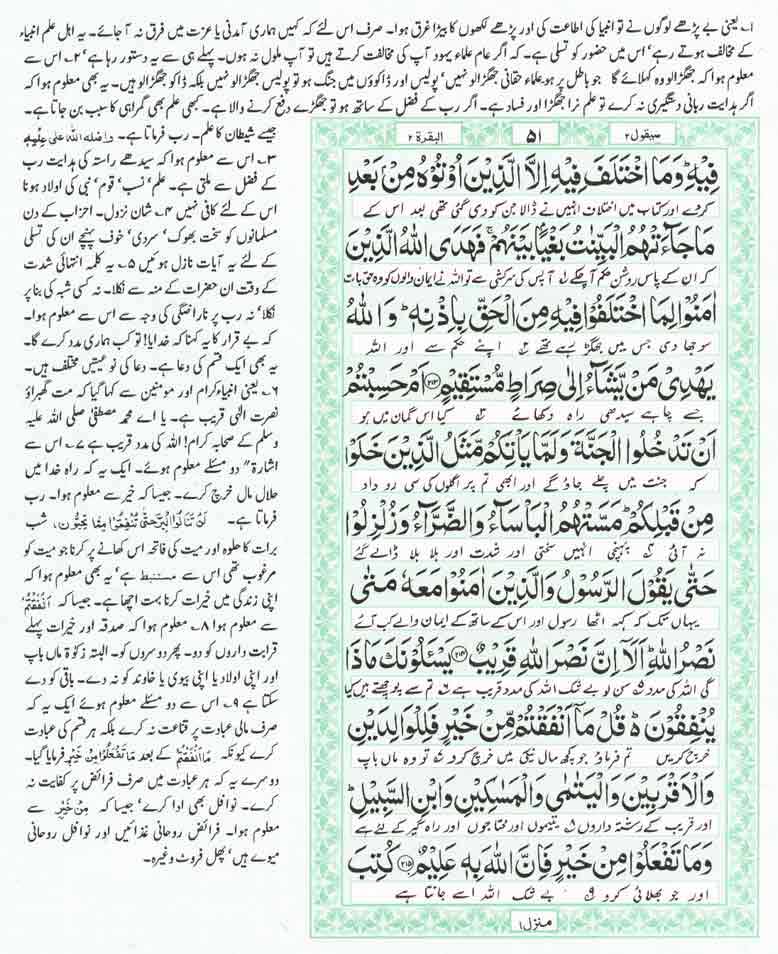 ۱۔ یعنی بے پڑھے لوگوں نے تو انبیا کی اطاعت کی اور پڑھے لکھوں کا بیڑا غرق ہوا۔ صرف اس لئے کہ کہیں ہماری آمدنی یا عزت میں فرق نہ آ جائے۔ یہ اہل علم انبیاء
کے مخالف ہوتے رہے' اس میں حضور کو تسلی ہے۔ کہ اگر عام علماء یہود آپ کی مخالفت کرتے ہیں تو آپ ملول نہ ہوں۔ پہلے ہی سے یہ دستور رہا ہے ۲۔ اس سے
معلوم ہوا کہ جھگڑالو وہ کہلائے گا جو باطل پر ہو علماء حقانی جھگڑالو نہیں' پولیس اور ڈاکوؤں میں جنگ ہو تو پولیس جھگڑالو نہیں بلکہ ڈاکو جھگڑالو ہیں۔ یہ بھی معلوم ہوا کہ
اگر ہدایت ربانی دستگیری نہ کرے تو علم نرا جھگڑا اور فساد ہے۔ اگر رب کے فضل کے ساتھ ہو تو جھگڑے دفع کرنے والا ہے۔ کبھی علم بھی گمراہی کا سبب بن جاتا ہے۔
جیسے شیطان کا علم۔ رب فرماتا ہے۔ وَاَضَلَّهُ اللّٰهُ عَلٰى عِلْمٍ
۳۔ اس سے معلوم ہوا کہ سیدھے راستہ کی ہدایت رب
کے فضل سے ملتی ہے۔ علم' نسب' قوم' نبی کی اولاد ہونا
اس کے لئے کافی نہیں ۴۔ شان نزول۔ احزاب کے دن
مسلمانوں کو سخت بھوک' سردی' خوف پہنچے ان کی تسلی
کے لئے یہ آیات نازل ہوئیں ۵۔ یہ کلمہ انتہائی شدت
کے وقت ان حضرات کے منہ سے نکلا۔ نہ کسی شبہ کی بنا پر
نکلا' نہ رب پر ناراضگی کی وجہ سے اس سے معلوم ہوا۔
کہ بے قرار کا یہ کہنا کہ خدایا! تو کب ہماری مدد کرے گا۔
یہ بھی ایک قسم کی دعا ہے۔ دعا کی نوعیتیں مختلف ہیں۔
۶۔ یعنی انبیاء کرام اور مومنین سے کہا گیا کہ مت گھبراؤ
نصرت الٰہی قریب ہے۔ یا اے محمد مصطفیٰ صلی اللہ علیہ
وسلم کے صحابہ کرام! اللہ کی مدد قریب ہے ۷۔ اس سے
اشارۃ" دو مسئلے معلوم ہوئے۔ ایک یہ کہ راہ خدا میں
حلال مال خرچ کرے۔ جیسا کہ خیر سے معلوم ہوا۔ رب
فرماتا ہے۔ لَنْ تَنَالُوا الْبِرَّ حَتّٰى تُنْفِقُوْا مِمَّا تُحِبُّوْنَ، شب
برات کا حلوہ اور میت کی فاتحہ اس کھانے پر کرنا جو میت کو
مرغوب تھی اس سے مستنبط ہے' یہ بھی معلوم ہوا کہ
اپنی زندگی میں خیرات کرنا بہت اچھا ہے۔ جیسا کہ اَنْفَقْتُمْ
سے معلوم ہوا ۸۔ معلوم ہوا کہ صدقہ اور خیرات پہلے
قرابت داروں کو دو۔ پھر دوسروں کو۔ البتہ زکوٰۃ ماں باپ
اور اپنی اولاد یا اپنی بیوی یا خاوند کو نہ دے۔ باقی کو دے
سکتا ہے ۹۔ اس سے دو مسئلے معلوم ہوئے ایک یہ کہ
صرف مالی عبادت پر قناعت نہ کرے بلکہ ہر قسم کی عبادت
کرے کیونکہ مَا اَنْفَقْتُمْ کے بعد مَا تَفْعَلُوْا مِنْ خَيْرٍ فرمایا گیا۔
دوسرے یہ کہ ہر عبادت میں صرف فرائض پر کفایت نہ
کرے۔ نوافل بھی ادا کرے' جیسا کہ مِنْ خَيْرٍ سے
معلوم ہوا۔ فرائض روحانی غذائیں اور نوافل روحانی
میوے ہیں' پھل فروٹ وغیرہ۔
سیقول ۲ ۵۱ البقرة ۲
فِيْهِ ؕ وَمَا اخْتَلَفَ فِيْهِ اِلَّا الَّذِيْنَ اُوْتُوْهُ مِنْۢ بَعْدِ
کر دے اور کتاب میں اختلاف انہیں نے ڈالا جن کو دی گئی تھی بعد اس کے
مَا جَآءَتْهُمُ الْبَيِّنٰتُ بَغْيًۢا بَيْنَهُمْ ۚ فَهَدَى اللّٰهُ الَّذِيْنَ
کہ ان کے پاس روشن حکم آ چکے ۱ آپس کی سرکشی سے تو اللہ نے ایمان والوں کو وہ حق بات
اٰمَنُوْا لِمَا اخْتَلَفُوْا فِيْهِ مِنَ الْحَقِّ بِاِذْنِهٖ ؕ وَ اللّٰهُ
سوجھا دی جس میں جھگڑ رہے تھے ۲ اپنے حکم سے اور اللہ
يَهْدِيْ مَنْ يَّشَآءُ اِلٰى صِرَاطٍ مُّسْتَقِيْمٍ ﴿۲۱۳﴾ اَمْ حَسِبْتُمْ
جسے چاہے سیدھی راہ دکھائے ۳ کیا اس گمان میں ہو
اَنْ تَدْخُلُوا الْجَنَّةَ وَلَمَّا يَاْتِكُمْ مَّثَلُ الَّذِيْنَ خَلَوْا
کہ جنت میں چلے جاؤ گے اور ابھی تم پر اگلوں کی سی روداد
مِنْ قَبْلِكُمْ ؕ مَسَّتْهُمُ الْبَاْسَآءُ وَالضَّرَّآءُ وَزُلْزِلُوْا
نہ آئی ۴ پہنچی انہیں سختی اور شدت اور ہلا ہلا ڈالے گئے
حَتّٰى يَقُوْلَ الرَّسُوْلُ وَالَّذِيْنَ اٰمَنُوْا مَعَهٗ مَتٰى
یہاں تک کہ کہہ اٹھا رسول اور اس کے ساتھ کے ایمان والے کب آئے
نَصْرُ اللّٰهِ ؕ اَلَاۤ اِنَّ نَصْرَ اللّٰهِ قَرِيْبٌ ﴿۲۱۴﴾ يَسْـَٔلُوْنَكَ مَاذَا
گی اللہ کی مدد ۵ سن لو بے شک اللہ کی مدد قریب ہے ۶ تم سے پوچھتے ہیں کیا
يُنْفِقُوْنَ ؕ قُلْ مَاۤ اَنْفَقْتُمْ مِّنْ خَيْرٍ فَلِلْوَالِدَيْنِ
خرچ کریں تم فرماؤ جو کچھ مال نیکی میں خرچ کرو ۷ تو وہ ماں باپ
وَالْاَقْرَبِيْنَ وَالْيَتٰمٰى وَالْمَسٰكِيْنِ وَابْنِ السَّبِيْلِ ؕ
اور قریب کے رشتہ داروں ۸ یتیموں اور محتاجوں اور راہ گیر کے لئے ہے
وَمَا تَفْعَلُوْا مِنْ خَيْرٍ فَاِنَّ اللّٰهَ بِهٖ عَلِيْمٌ ﴿۲۱۵﴾ كُتِبَ
اور جو بھلائی کرو ۹ بے شک اللہ اسے جانتا ہے
منزل ۱